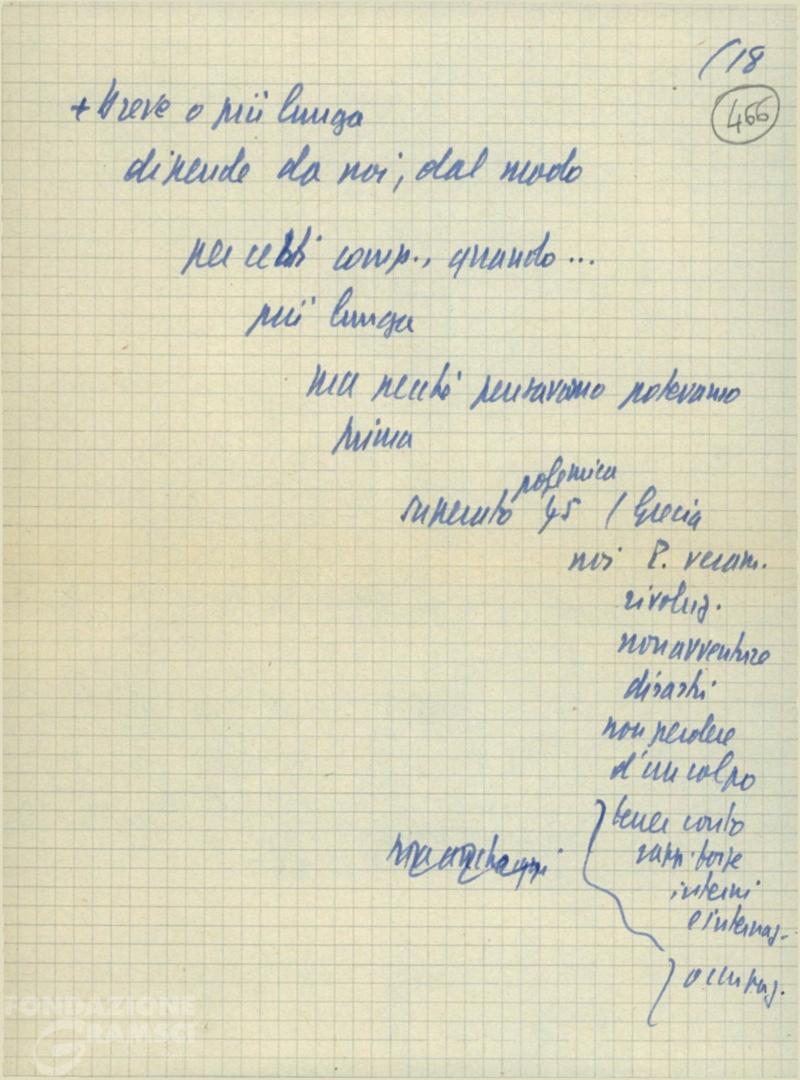 (18
466
+ breve o più lunga
dipende da noi, dal modo
per certi comp., quando...
più lunga
ma perché pensavamo potevamo
prima
polemica
superato 45 / Grecia
noi P. veram.
rivoluz.
non avventure
disastri
non perdere
d'un colpo
tener conto
rapp. forze
interni
e internaz.
occupaz.
FONDAZIONE
GRAMSCI